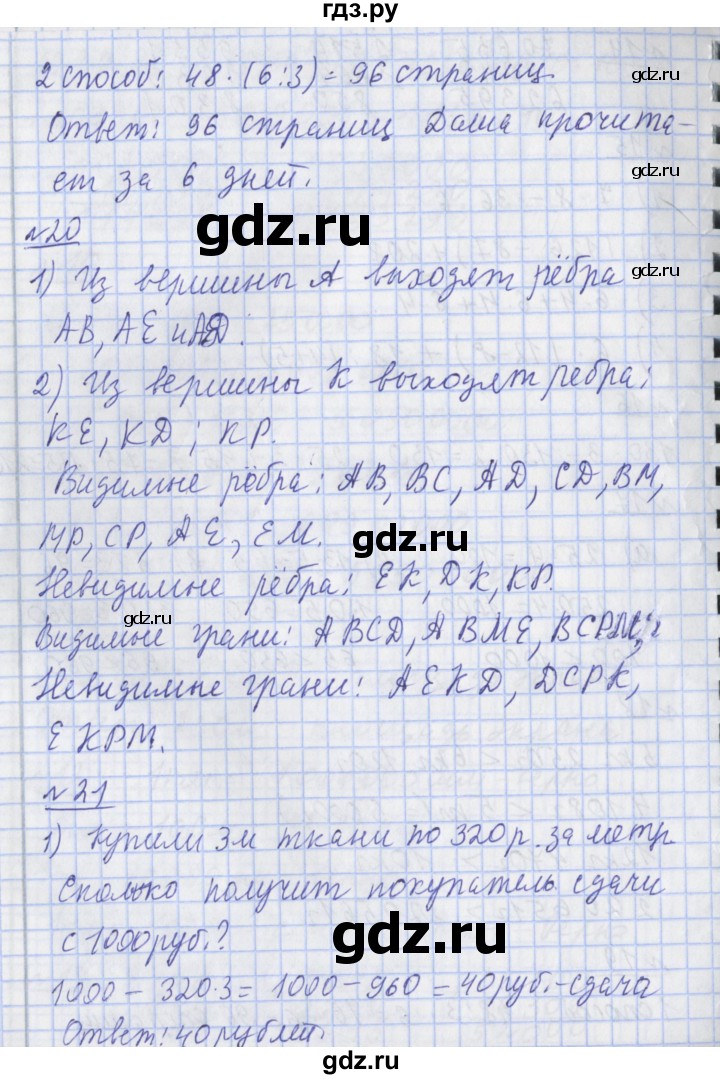 гдз.ру
2 способ: 48·(6:3)=96 страниц
Ответ: 96 страниц Даша прочита-
ет за 6 дней.
№20
1) Из вершины А выходят рёбра
АВ, АЕ и АD.
2) Из вершины К выходят ребра:
КЕ, КD; КР.
Видимые рёбра: АВ, ВС, АD, СD, ВМ,
МР, СР, АЕ, ЕМ.
Невидимые рёбра: ЕК, DК, КР.
Видимые грани: АВСD, АВМЕ, ВСРМ;
Невидимые грани: АЕКD, DСРК,
ЕКРМ.
№21
1) Купили 3м ткани по 320р. за метр
Сколько получит покупатель сдачи
с 1000руб.?
1000 - 320·3 = 1000 - 960 = 40руб.-сдача
Ответ: 40 рублей.
gdz.ru
gdz.ru
gdz.ru
gdz.ru
gdz.ru
gdz.ru
gdz.ru
gdz.ru
gdz.ru